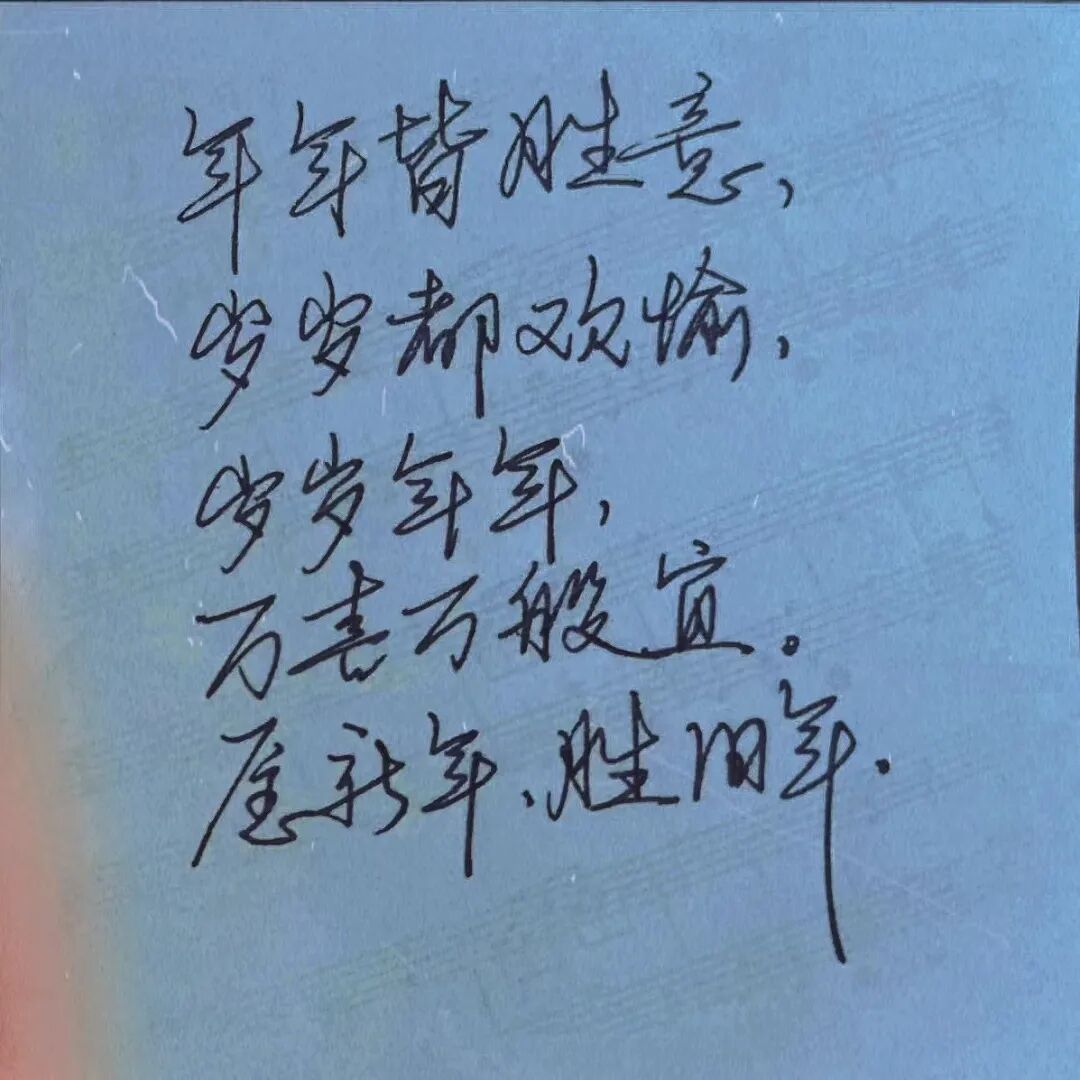 年年皆胜意，
岁岁都欢愉，
岁岁年年，
万喜万般宜。
愿新年、胜旧年.